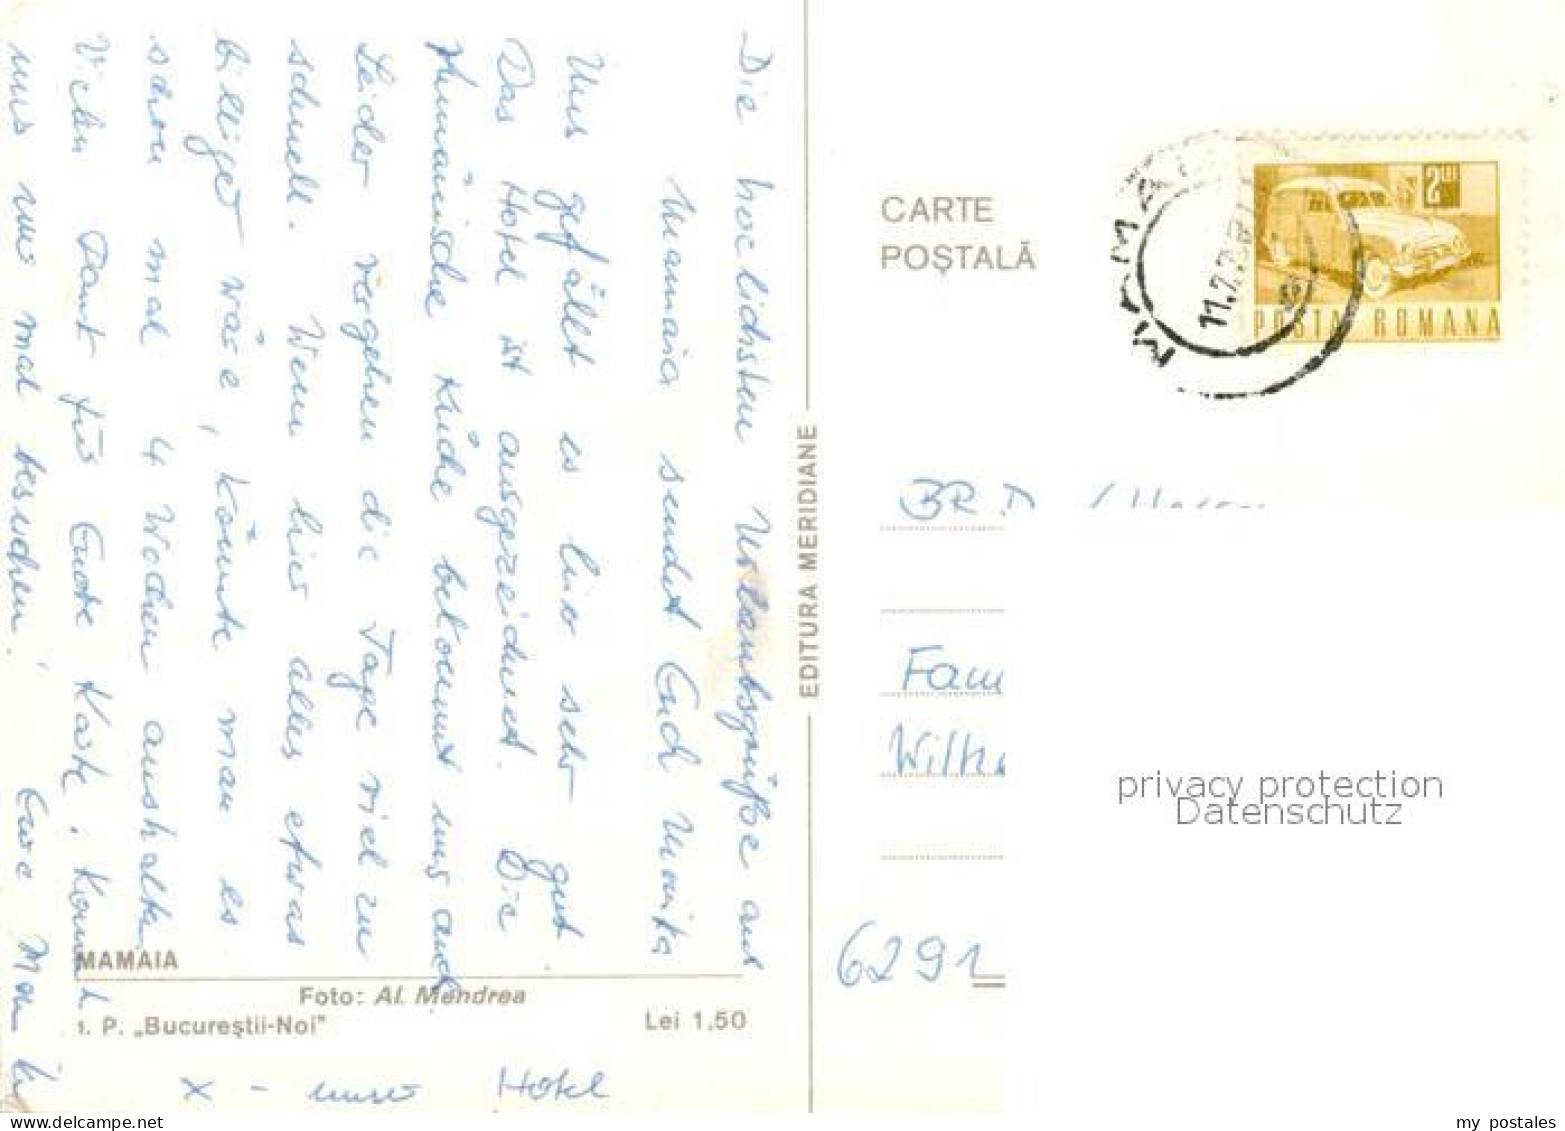 Die herzlichsten Urlaubsgrüße aus
Mamaia sendet Euch Monika
Uns gefällt es hier sehr gut.
Das Hotel ist ausgezeichnet. Die
rumänische Küche bekommt uns auch
Leider vergehen die Tage viel zu
schnell. Wenn hier alles etwas
billiger wäre, könnte man es
schon mal 4 Wochen aushalten
Vielen Dank für Eure Karte. Kommt
uns mal besuchen. Eure
x - unser Hotel
MAMAIA
Foto: Al. Mendrea
I. P. „Bucureştii-Noi"
Lei 1,50
EDITURA MERIDIANE
CARTE
POŞTALĂ
MAMAIA
11.7.7
2 LEI
POSTA ROMANA
BRD /
Fam
Wilhe
6291
privacy protection
Datenschutz
my postales
delcampe.net